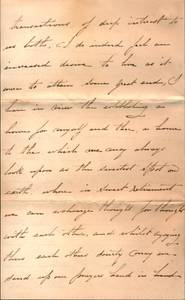 transactions, of deep interest to
us both, I do indeed feel an
increased desire to live as it
were to attain some great end, I
have in view the establishing a
home for myself and thee, a home
to the which we may always
look upon as the sweetest spot on
earth, where in sweet retirement
we can exchange thought for thought
with each other, and whilst enjoying
thus each others society may we
send up our prayers hand in hand